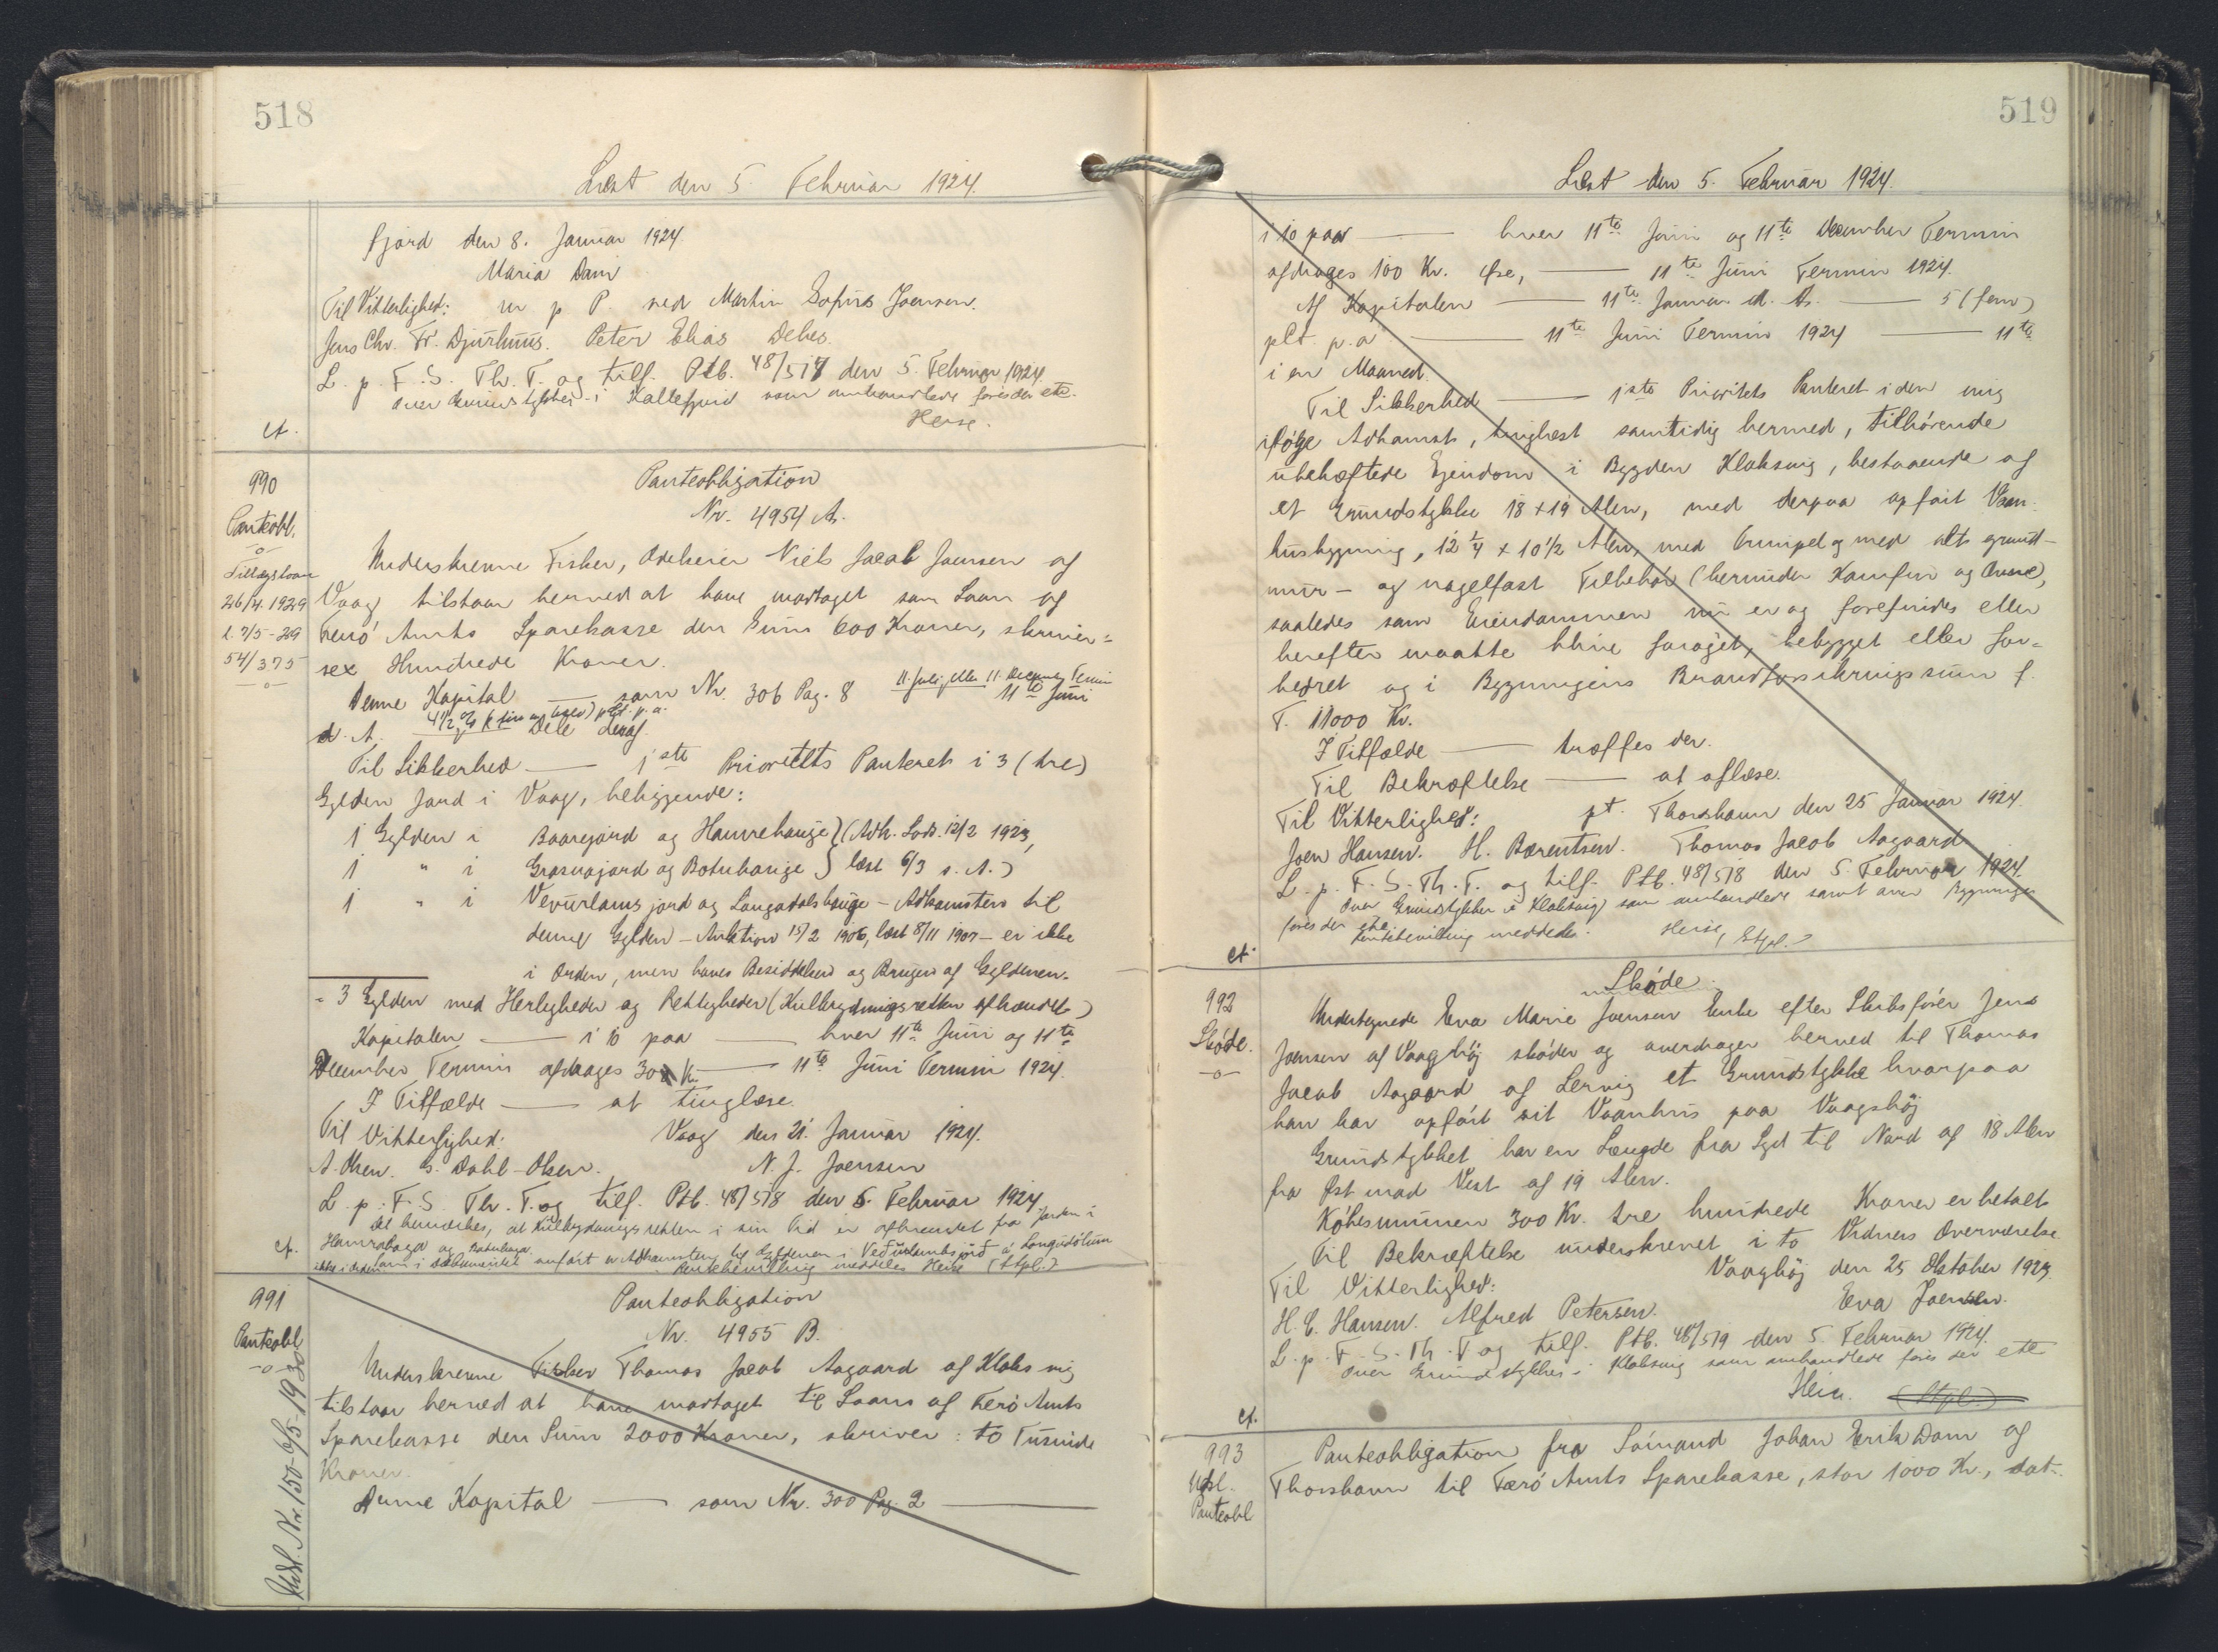 518
Læst den 5. Februar 1924.
fjord den 8. Januar 1924.
Maria Dam
Til Vitterlighed: m p P. ved Martin Sofus Joensen.
Jens Chr. Fr. Djurhuus. Peter Elias Debes.
L. p. F. S. Th. T. og tilf. Ptb. 48/517 den 5. Februar 1924
over Grundstykker i Kallefjord som omhandlede føres der etc.
Heise.
ct.
990
Panteobl.
-o-
Tillægslaan
26/4. 1929
l. 7/5-29
54/375
-o-
Panteobligation
Nr. 4954 A.
Underskrevne Fisker, Odelseier Niels Jacob Joensen af
Vaag tilstaar herved at have modtaget som Laan af
Færø Amts Sparekasse den Sum 600 Kroner, skriver:
sex Hundrede Kroner.
Denne Kapital — som Nr. 306 Pag. 8 11. Juli eller 11. December Termin 11te Juni
d. A. 4 1/2 % (fire og halv) pCt. p. a. Dele deraf.
Til Sikkerhed — 1ste Prioritets Panteret i 3 (tre)
Gylden Jord i Vaag, beliggende:
1 Gylden i Baaregjørd og Hamrehauge } (Adk. Lods. 12/2 1923,
1 " i Grasnagjørd og Botnhauge } læst 6/3 s. A.)
1 " i Vevurlams jord og Langadalshauge - Adkomsten til
denne Gylden - Auktion 15/2 1906, læst 8/11 1907 - er ikke
i Orden, men haves Besiddelsen og Brugen af Gyldenen.
= 3 Gylden med Herligheder og Rettigheder (Kulbrydningsretten afhændet)
Kapitalen — i 10 paa — hver 11te Juni og 11te
December Termin afdrages 30 Kr. — 11te Juni Termin 1924.
I Tilfælde — at tinglæse.
Til Vitterlighed: Vaag den 21. Januar 1924.
A. Olsen. G. Dahl-Olsen. N. J. Joensen
L. p. F. S. Th. T. og tilf. Ptb. 48/518 den 5. Februar 1924.
Det bemærkes, at Kulbrydningsretten i sin Tid er afhændet fra Jorden i
Hamrahaga og Botnhaga
ikke i Orden som i Dokumentet anført er Adkomsten til Gyldenen i Veðurlambsjørð á Langadølum
Rentebevilling meddeles Heise (Stpl.)
ct.
991
Panteobl
-o-
Udsl. Nr. 150-6/5-1930
Panteobligation
Nr. 4955 B.
Underskrevne Fisker Thomas Jacob Aagaard af Klaksvig
tilstaar herved at have modtaget til Laans af Færø Amts
Sparekasse den Sum 2000 Kroner, skriver: to Tusinde
Kroner.
Denne Kapital — som Nr. 300 Pag. 2 —
519
Læst den 5. Februar 1924.
i 10 paa — hver 11te Juni og 11te December Termin
afdrages 100 Kr. — 11te Juni Termin 1924.
Af Kapitalen — 11te Januar d. A. — 5 (fem)
pCt. p. a — 11te Juni Termin 1924 — 11te
i en Maaned.
Til Sikkerhed — 1ste Prioritets Panteret i den mig
ifølge Adkomst, tinglæst samtidig hermed, tilhørende
ubehæftede Ejendom i Bygden Klaksvig, bestaaende af
et Grundstykke 18 x 19 Alen, med derpaa opført Vaan-
husbygning, 12 1/4 x 10 1/2 Alen, med Grunpel og med alt grund-
mur- og nagelfast Tilbehør (herunder Komfur og Ovne),
saaledes som Eiendommen nu er og forefindes eller
herefter maatte blive forøget, bebygget eller for-
bedret og i Bygningens Brandforsikringssum f.
T. 11000 Kr.
I Tilfælde — træffes der.
Til Bekræftelse — at aflæse.
Til Vitterlighed: pt. Thorshavn den 25 Januar 1924.
Joen Hansen. H. Bærentsen. Thomas Jacob Aagaard
L. p. F. S. Th. T. og tilf. Ptb. 48/518 den 5. Februar 1924.
over Grundstykker i Klaksvig som omhandlede samt over Bygninger
føres der etc.
Rentebevilling meddeles. Heise, Stpl.
ct.
992
Skøde.
-o-
Skøde
Undertegnede Eva Marie Joensen Enke efter Skibsfører Jens
Joensen af Vaaghøj skøder og overdrager herved til Thomas
Jacob Aagaard af Lervig et Grundstykke hvorpaa
han har opført sit Vaanhus paa Vaagshøj
Grundstykket har en Længde fra Syd til Nord af 18 Alen
fra Øst mod Vest af 19 Alen.
Købesummen 300 Kr. tre hundrede Kroner er betalt
Til Bekræftelse underskrevet i to Vidners Overværelse.
Til Vitterlighed: Vaaghøj den 25 Oktober 1923.
H. C. Hansen. Alfred Petersen. Eva Joensen.
L. p. F. S. Th. T og tilf. Ptb. 48/519 den 5. Februar 1924.
over Grundstykker i Klaksvig som omhandlede føres der etc
Heise. (Stpl.)
ct.
993
Udsl.
Panteobl
Panteobligation fra Sømand Johan Erik Dam af
Thorshavn til Færø Amts Sparekasse, stor 1000 Kr., dat.